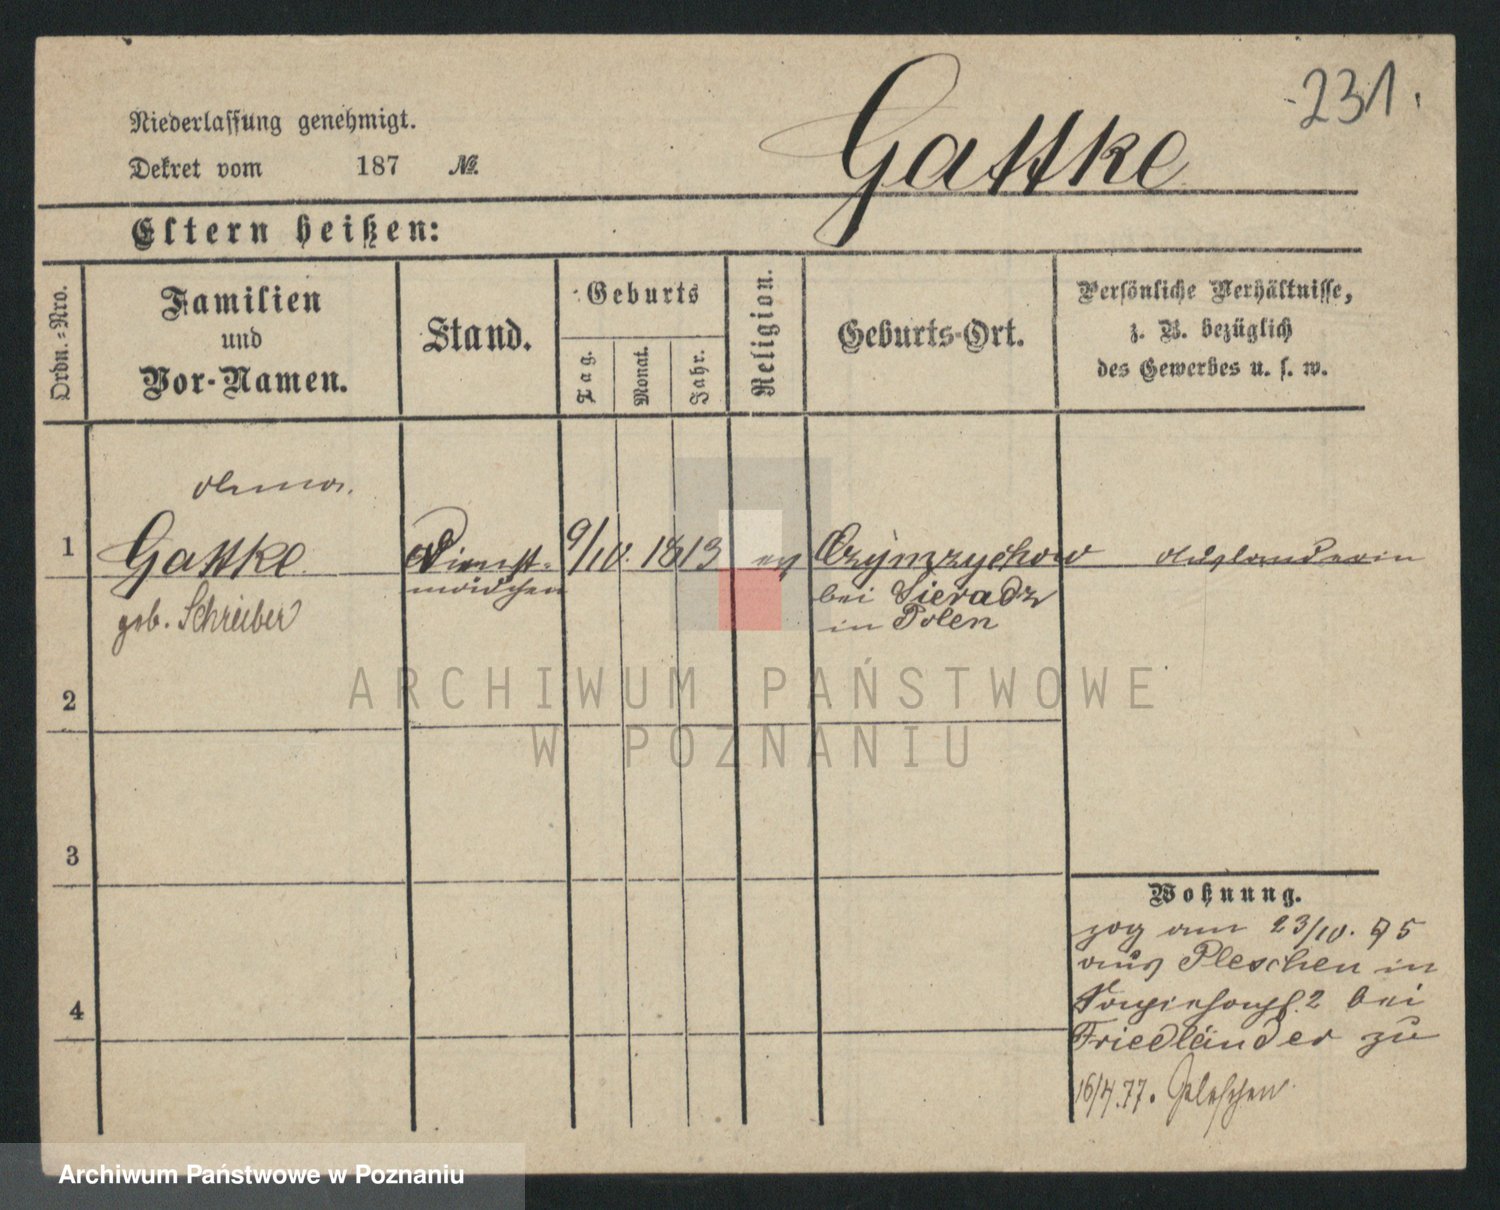 231.
Niederlassung genehmigt.
Gattke
Dekret vom 187 №.
Eltern heißen:
Ordn.-Nro.
Familien
und
Vor-Namen.
Stand.
Geburts
Tag.
Monat.
Jahr.
Religion.
Geburts-Ort.
Persönliche Verhältnisse,
z. B. bezüglich
des Gewerbes u. s. w.
1
Gattke
geb. Schreiber
Dienst-
mädchen
9/10. 1813
ev
bei Sieradz
in Polen
Ausländerin
2
3
4
Wohnung.
zog am 23/10. 75
aus Pleschen in
2 bei
Friedländer zu
16/4.77. Pleschen
ARCHIWUM PAŃSTWOWE
W POZNANIU
Archiwum Państwowe w Poznaniu